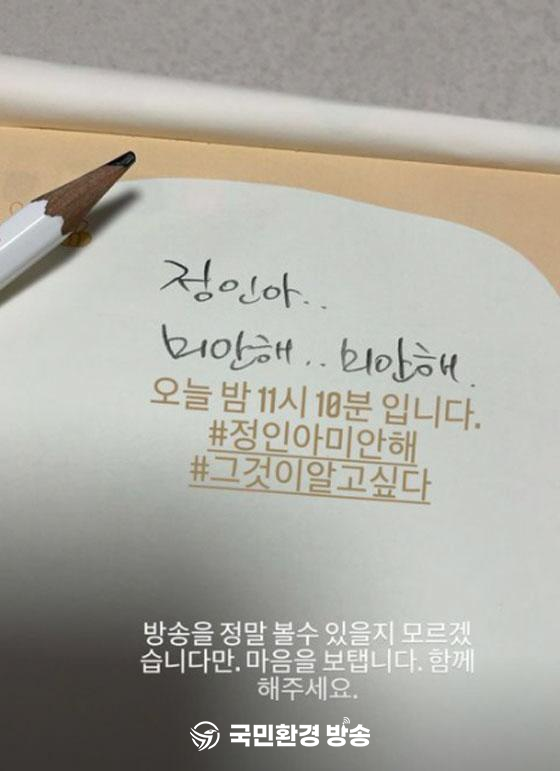 정인아..
미안해.. 미안해.
오늘 밤 11시 10분 입니다.
#정인아미안해
#그것이알고싶다
방송을 정말 볼수 있을지 모르겠
습니다만. 마음을 보탭니다. 함께
해주세요.
국민환경 방송